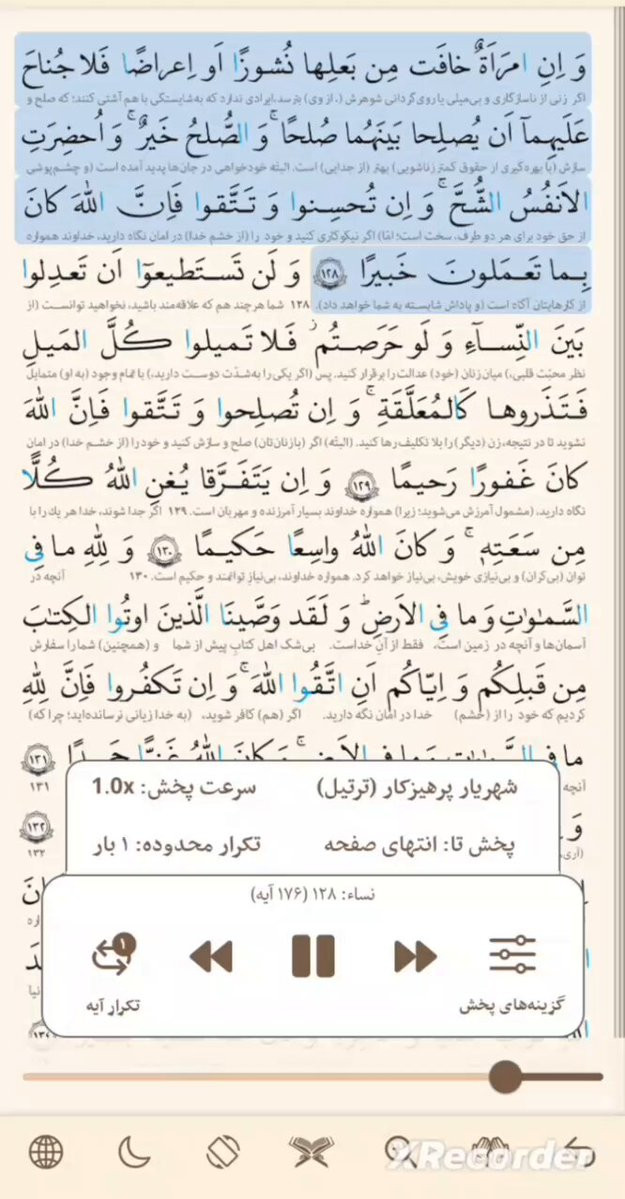 وَ اِنِ امرَاَةٌ خافَت مِن بَعلِها نُشوزًا اَو اِعراضًا فَلا جُناحَ
اگر زنی از ناسازگاری و بی‌میلی یا روی‌گردانی شوهرش (، از وی) بترسد، ایرادی ندارد که به‌شایستگی با هم آشتی کنند؛ که صلح و
عَلَیهِمآ اَن یُصلِحا بَینَهُما صُلحًا ۚ وَ الصُّلحُ خَیرٌ ۗ وَ اُحضِرَتِ
سازش (با بهره‌گیری از حقوق کمتر زناشویی) بهتر (از جدایی) است. البتّه خودخواهی در جان‌ها پدید آمده است (و چشم‌پوشی
الاَنفُسُ الشُّحَّ ۚ وَ اِن تُحسِنوا وَ تَتَّقوا فَاِنَّ اللّٰهَ کانَ
از حق خود برای هر دو طرف، سخت است؛ امّا) اگر نیکوکاری کنید و خود را (از خشم خدا) در امان نگاه دارید، خداوند همواره
بِما تَعمَلونَ خَبیرًا ۱۲۸ وَ لَن تَستَطیعوٓا اَن تَعدِلوا
از کارهایتان آگاه است (و پاداش شایسته به شما خواهد داد). ۱۲۸ شما هر چند هم که علاقه‌مند باشید، نخواهید توانست (از
بَینَ النِّسآءِ وَ لَو حَرَصتُم ۖ فَلا تَمیلوا کُلَّ المَیلِ
نظر محبّت قلبی،) میان زنان (خود) عدالت را برقرار کنید. پس (اگر یکی را به‌شدّت دوست دارید،) با تمام وجود (به او) متمایل
فَتَذَروها کَالمُعَلَّقَةِ ۚ وَ اِن تُصلِحوا وَ تَتَّقوا فَاِنَّ اللّٰهَ
نشوید تا در نتیجه، زن (دیگر) را بلاتکلیف رها کنید. (البتّه) اگر (با زنان‌تان) صلح و سازش کنید و خود را (از خشم خدا) در امان
کانَ غَفورًا رَحیمًا ۱۲۹ وَ اِن یَتَفَرَّقا یُغنِ اللّٰهُ کُلًّا
نگاه دارید، (مشمول آمرزش می‌شوید؛ زیرا) همواره خداوند بسیار آمرزنده و مهربان است. ۱۲۹ اگر جدا شوند، خدا هر یک را با
مِن سَعَتِهٖ ۚ وَ کانَ اللّٰهُ واسِعًا حَکیمًا ۱۳۰ وَ لِلّٰهِ ما فِی
توان (بی‌کران) و بی‌نیازی خویش، بی‌نیاز خواهد کرد. همواره خداوند، بی‌نیازِ توانمند و حکیم است. ۱۳۰ آنچه در
السَّمٰوٰتِ وَ ما فِی الاَرضِ ۗ وَ لَقَد وَصَّینَا الَّذینَ اوتُوا الکِتٰبَ
آسمان‌ها و آنچه در زمین است، فقط از آنِ خداست. بی‌شک اهل کتابِ پیش از شما و (همچنین) شما را سفارش
مِن قَبلِکُم وَ اِیّاکُم اَنِ اتَّقُوا اللّٰهَ ۚ وَ اِن تَکفُروا فَاِنَّ لِلّٰهِ
کردیم که خود را از (خشم) خدا در امان نگه دارید. اگر (هم) کافر شوید، (به خدا زیانی نرسانده‌اید؛ چرا که)
ما فِی السَّمٰوٰتِ وَ ما فِی الاَرضِ ۚ وَ کانَ اللّٰهُ غَنِیًّا حَمیدًا ۱۳۱
آنچه
۱۳۱
شهریار پرهیزکار (ترتیل) سرعت پخش: 1.0x
وَ
۱۳۲
پخش تا: انتهای صفحه تکرار محدوده: ۱ بار
(آری،
۱۳۲
نساء: ۱۲۸ (۱۷۶ آیه)
۱
گزینه‌های پخش تکرار آیه
XRecorder